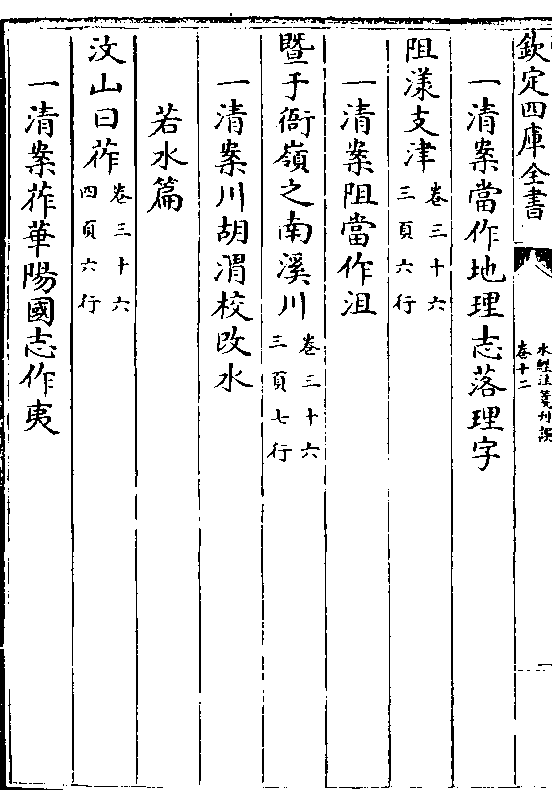 欽定四庫全書
水經注箋刊誤
卷十二
一清案當作地理志落理字
阻漾支津卷三十六
三頁六行
一清案阻當作沮
暨于衙嶺之南溪川卷三十六
三頁七行
一清案川胡渭校改水
若水篇
汶山曰莋卷三十六
四頁六行
一清案莋華陽國志作夷